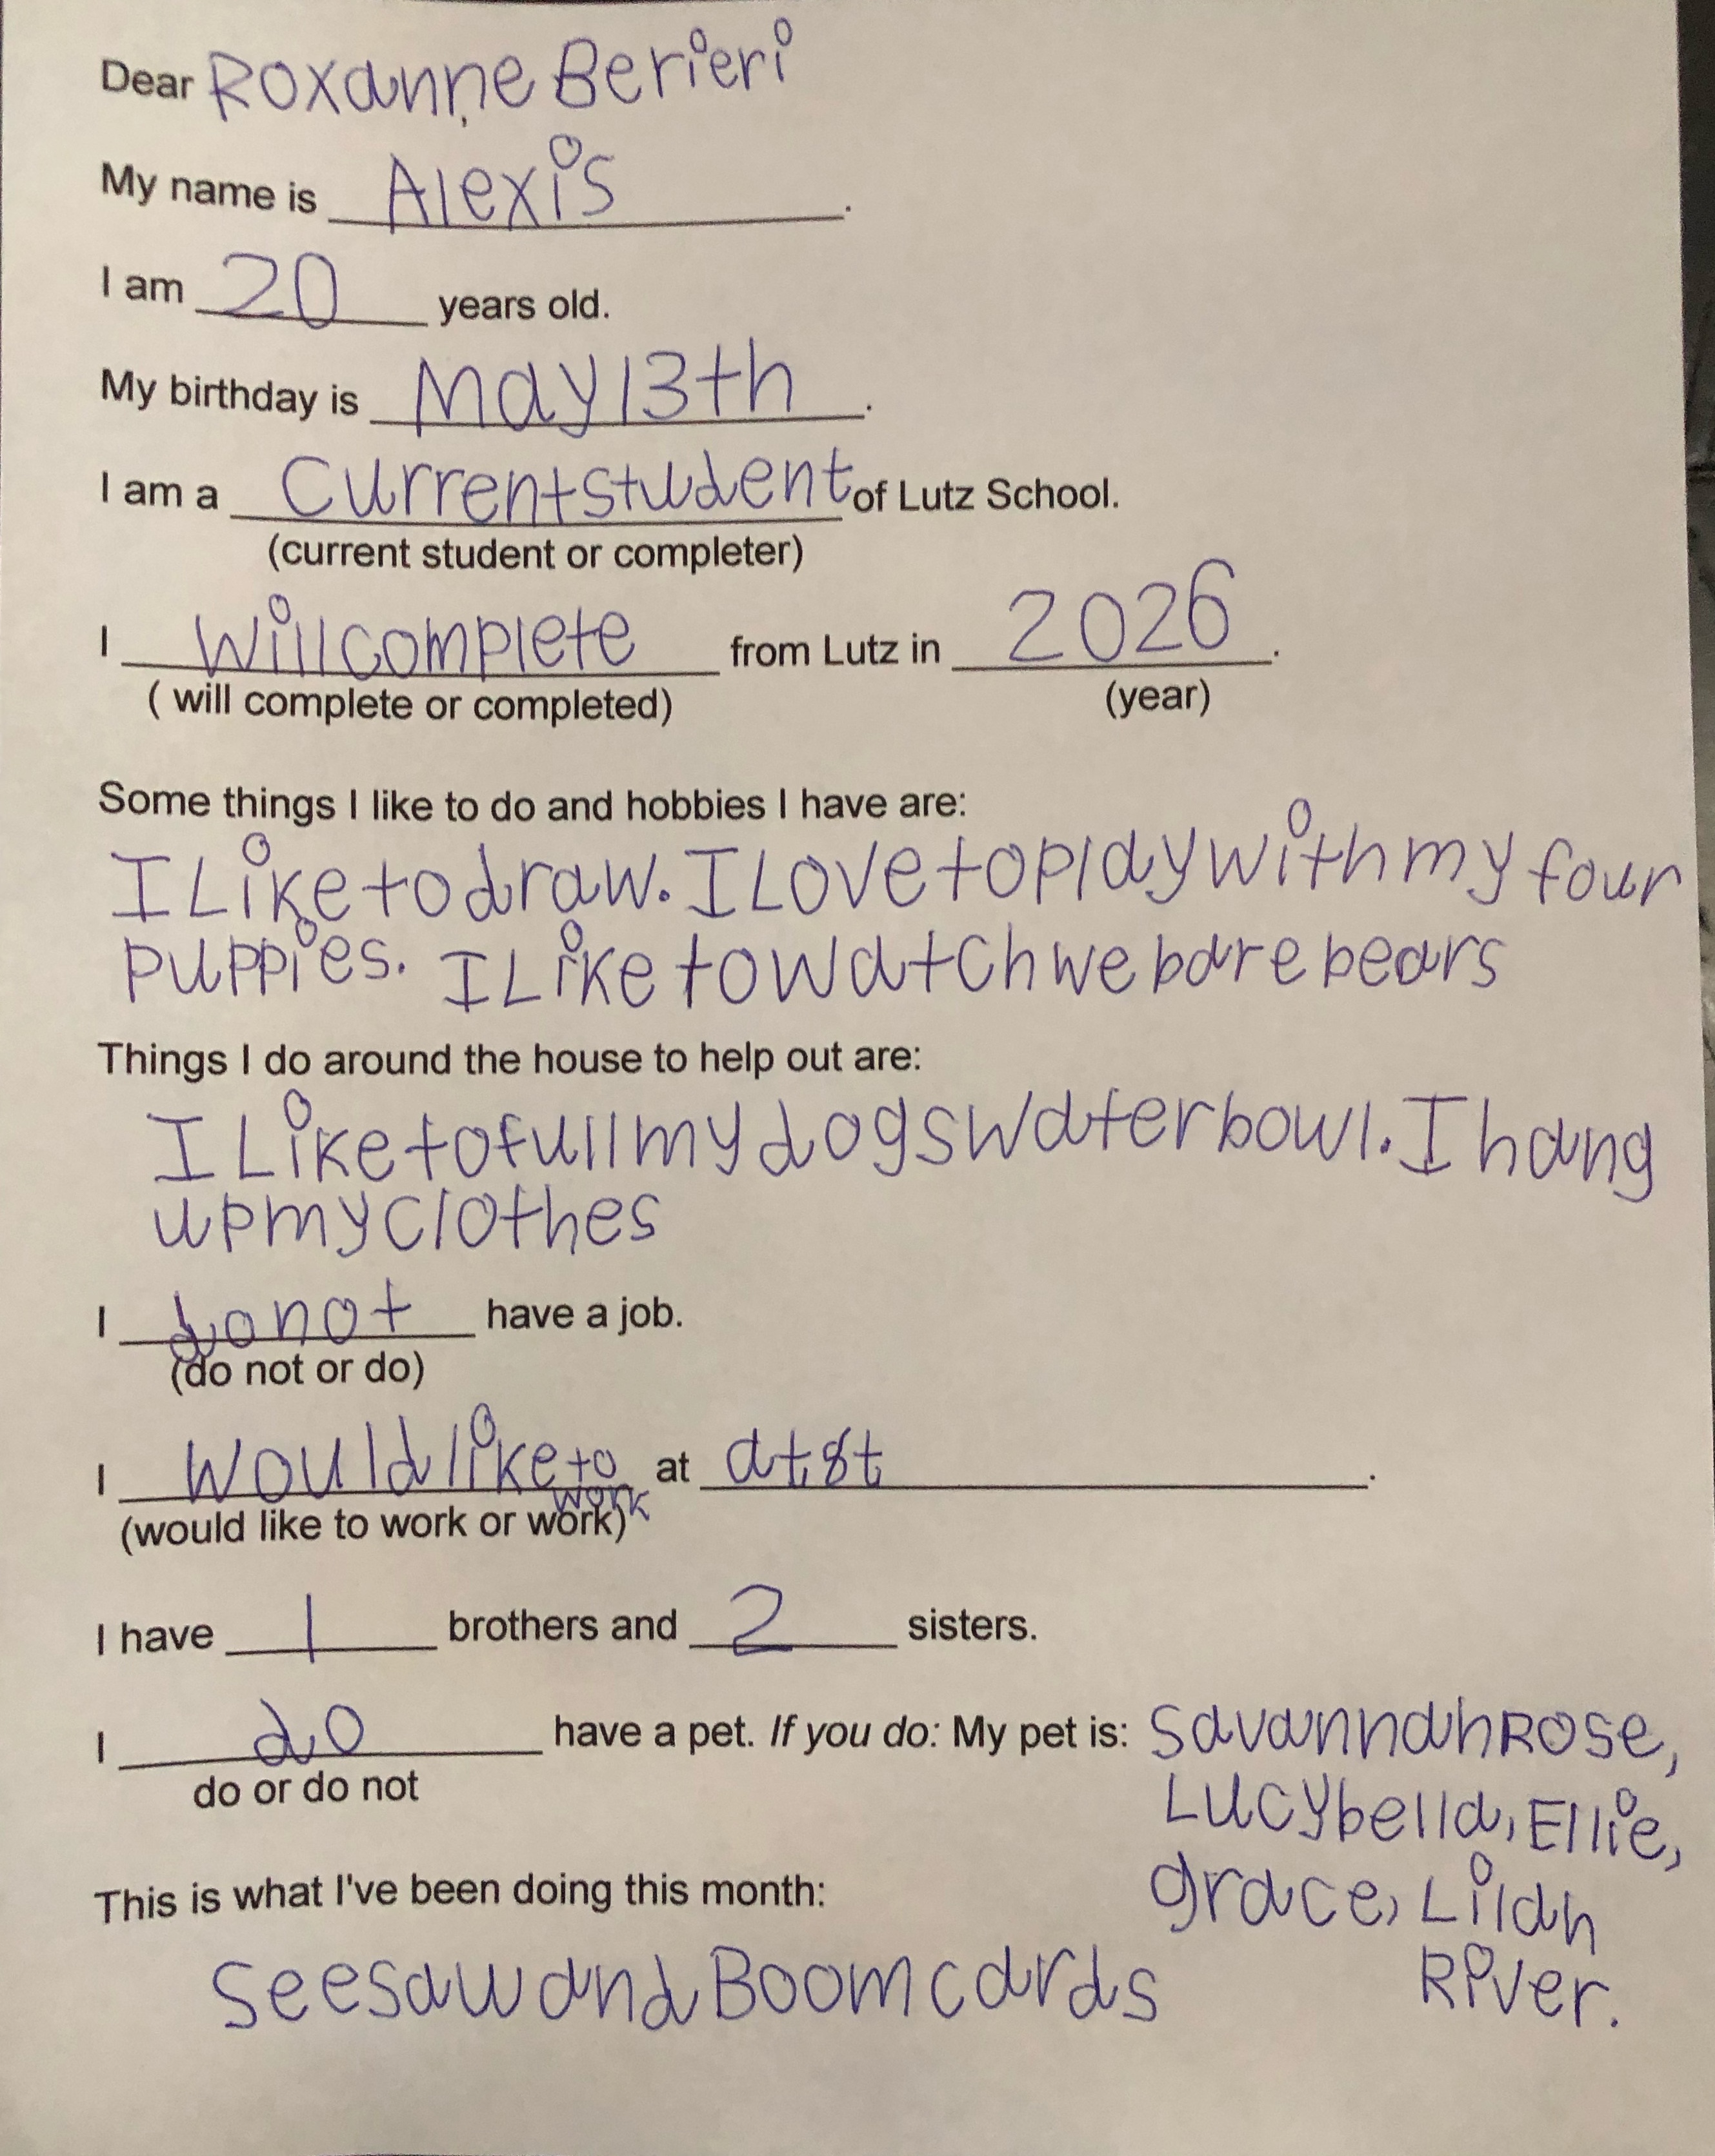 Dear Roxanne Berieri
My name is Alexis.
I am 20 years old.
My birthday is May 13th.
I am a current student of Lutz School.
(current student or completer)
I will complete from Lutz in 2026.
( will complete or completed) (year)
Some things I like to do and hobbies I have are:
I Like to draw. I Love to play with my four
puppies. I Like to watch we bare bears
Things I do around the house to help out are:
I Like to full my dogs water bowl. I hang
up my clothes
I do not have a job.
(do not or do)
I would like to work at at&t.
(would like to work or work)
I have 1 brothers and 2 sisters.
I do have a pet. If you do: My pet is: Savannah Rose,
do or do not Lucybella, Ellie,
grace, Lilah
River.
This is what I've been doing this month:
Seesaw and Boom cards